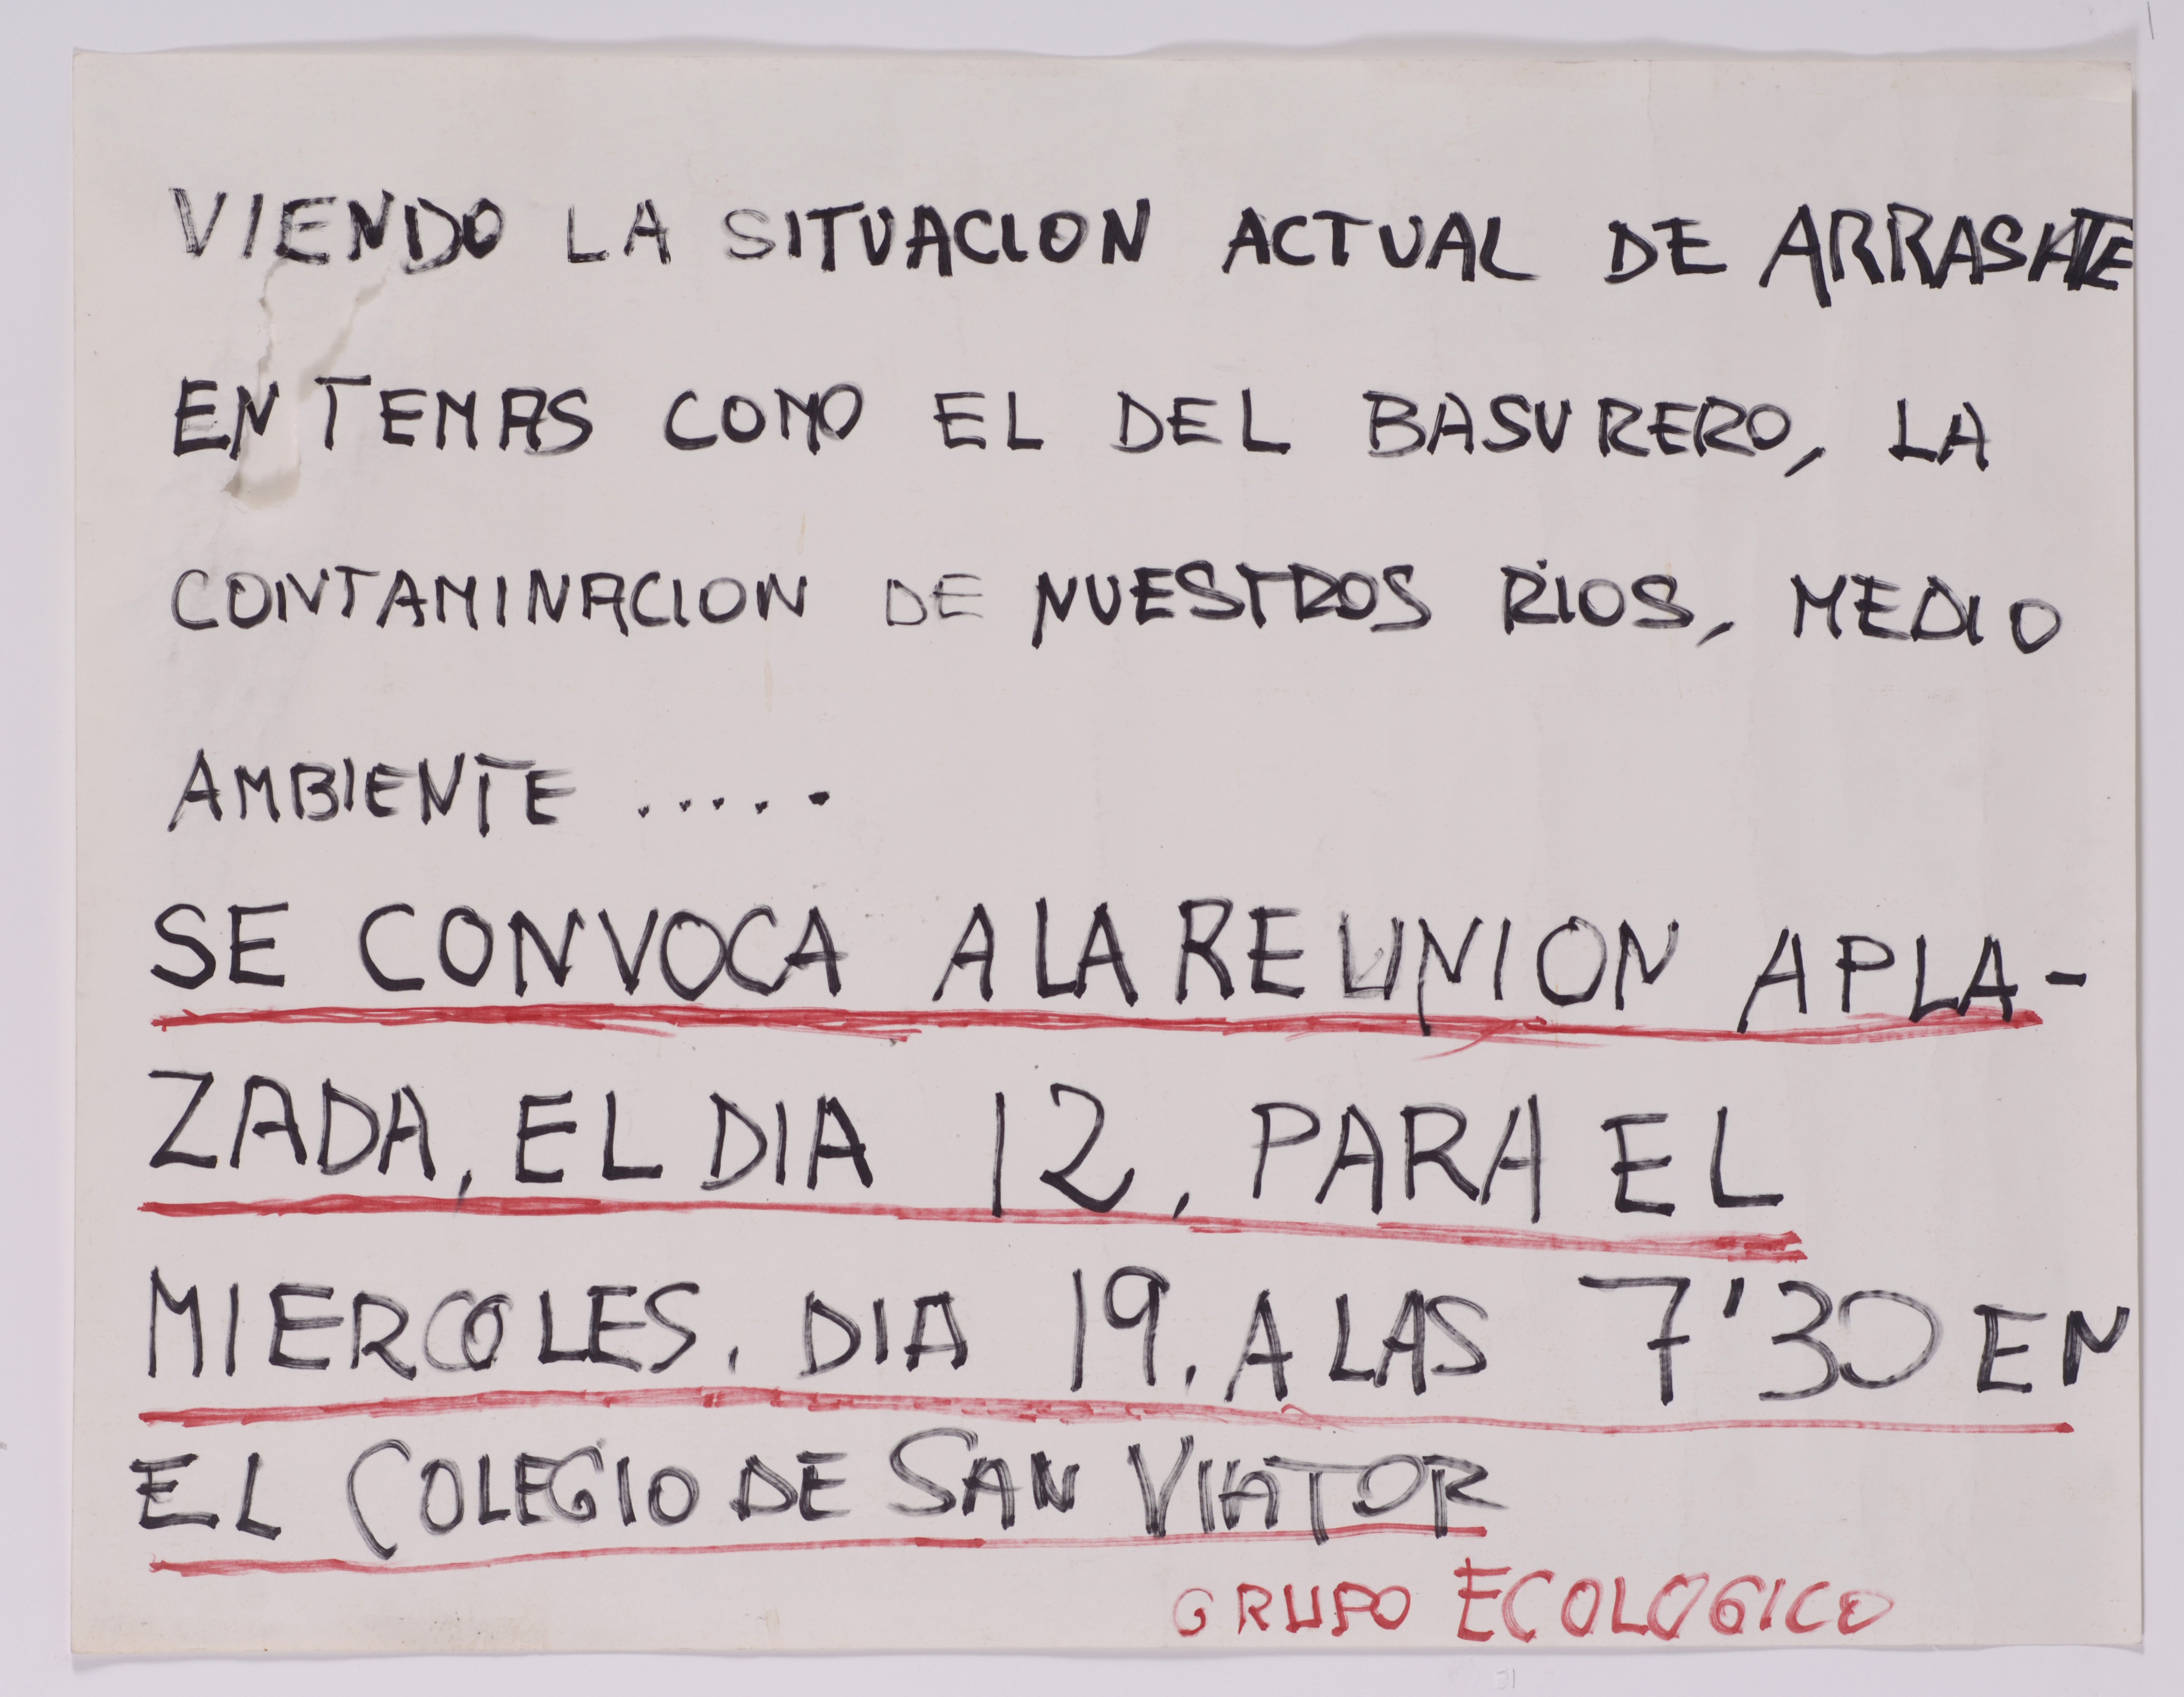 VIENDO LA SITUACION ACTUAL DE ARRASATE
EN TEMAS COMO EL DEL BASURERO, LA
CONTAMINACION DE NUESTROS RIOS, MEDIO
AMBIENTE .....
SE CONVOCA A LA REUNION APLA-
ZADA, EL DIA 12, PARA EL
MIERCOLES, DIA 19, A LAS 7'30 EN
EL COLEGIO DE SAN VIATOR
GRUPO ECOLOGICO